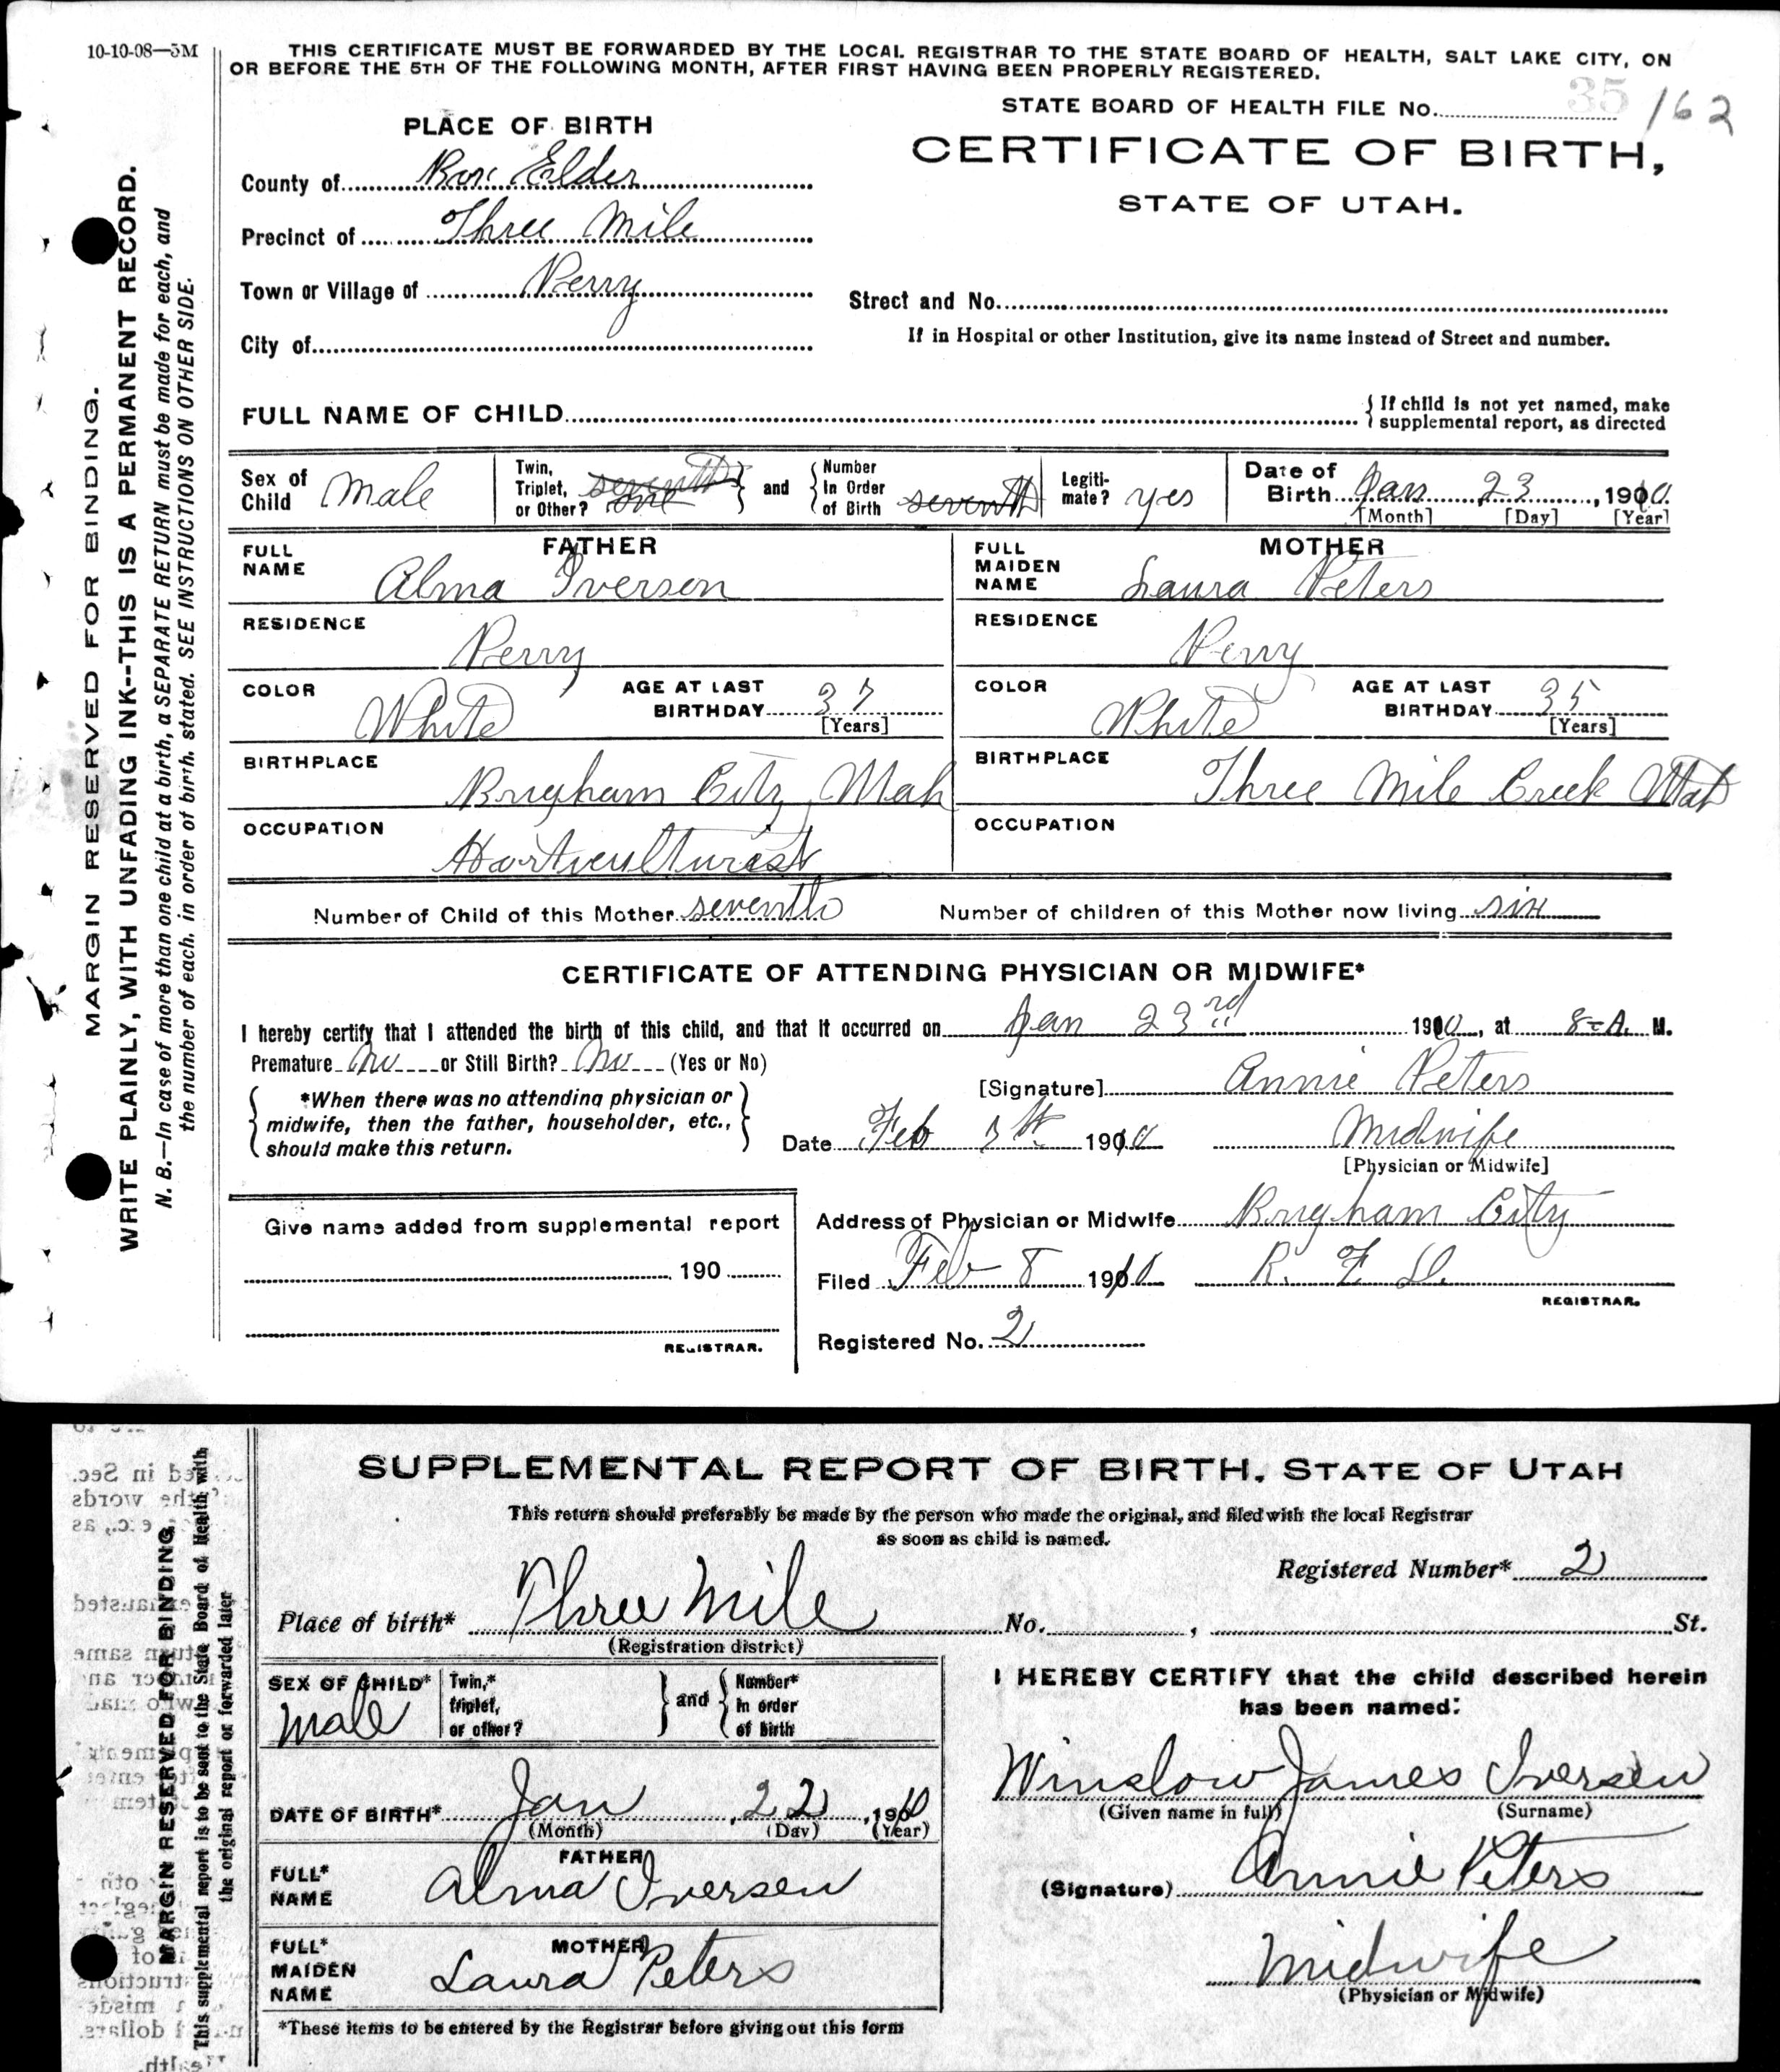 10-10-08—5M
THIS CERTIFICATE MUST BE FORWARDED BY THE LOCAL REGISTRAR TO THE STATE BOARD OF HEALTH, SALT LAKE CITY, ON
OR BEFORE THE 5TH OF THE FOLLOWING MONTH, AFTER FIRST HAVING BEEN PROPERLY REGISTERED.
STATE BOARD OF HEALTH FILE No. 35 162
PLACE OF BIRTH
CERTIFICATE OF BIRTH,
STATE OF UTAH.
County of Box Elder
Precinct of Three Mile
Town or Village of Perry
Street and No.
City of
If in Hospital or other Institution, give its name instead of Street and number.
FULL NAME OF CHILD
{ If child is not yet named, make
supplemental report, as directed
Sex of Child Male
Twin, Triplet, or Other? seventh one } and { Number In Order of Birth seventh
Legiti-mate? yes
Date of Birth Jan 23, 1910
[Month] [Day] [Year]
FATHER
FULL NAME Alma Iverson
MOTHER
FULL MAIDEN NAME Laura Peters
RESIDENCE Perry
RESIDENCE Perry
COLOR White AGE AT LAST BIRTHDAY 37 [Years]
COLOR White AGE AT LAST BIRTHDAY 35 [Years]
BIRTHPLACE Brigham City, Utah
BIRTHPLACE Three Mile Creek Utah
OCCUPATION Horticulturist
OCCUPATION
Number of Child of this Mother seventh Number of children of this Mother now living six
CERTIFICATE OF ATTENDING PHYSICIAN OR MIDWIFE*
I hereby certify that I attended the birth of this child, and that it occurred on Jan 23rd 1910, at 8- A. M.
Premature No or Still Birth? No (Yes or No)
[Signature] Annie Peters
{ *When there was no attending physician or
midwife, then the father, householder, etc.,
should make this return. }
Date Feb 7th 1910 Midwife
[Physician or Midwife]
Give name added from supplemental report
190
REGISTRAR.
Address of Physician or Midwife Brigham City
Filed Feb 8 1910 R. F. D.
REGISTRAR.
Registered No. 2
MARGIN RESERVED FOR BINDING.
WRITE PLAINLY, WITH UNFADING INK--THIS IS A PERMANENT RECORD.
N. B.—In case of more than one child at a birth, a SEPARATE RETURN must be made for each, and
the number of each, in order of birth, stated. SEE INSTRUCTIONS ON OTHER SIDE.
SUPPLEMENTAL REPORT OF BIRTH. STATE OF UTAH
This return should preferably be made by the person who made the original, and filed with the local Registrar
as soon as child is named.
Registered Number* 2
Place of birth* Three Mile No. , St.
(Registration district)
SEX OF CHILD* Male
Twin,* triplet, or other? } and { Number* in order of birth
I HEREBY CERTIFY that the child described herein
has been named:
Winslow James Iversen
(Given name in full) (Surname)
DATE OF BIRTH* Jan, 22, 1910
(Month) (Day) (Year)
FATHER
FULL* NAME Alma Iversen
(Signature) Annie Peters
MOTHER
FULL* MAIDEN NAME Laura Peters
Midwife
(Physician or Midwife)
*These items to be entered by the Registrar before giving out this form
MARGIN RESERVED FOR BINDING.
This supplemental report is to be sent to the State Board of Health with
the original report or forwarded later